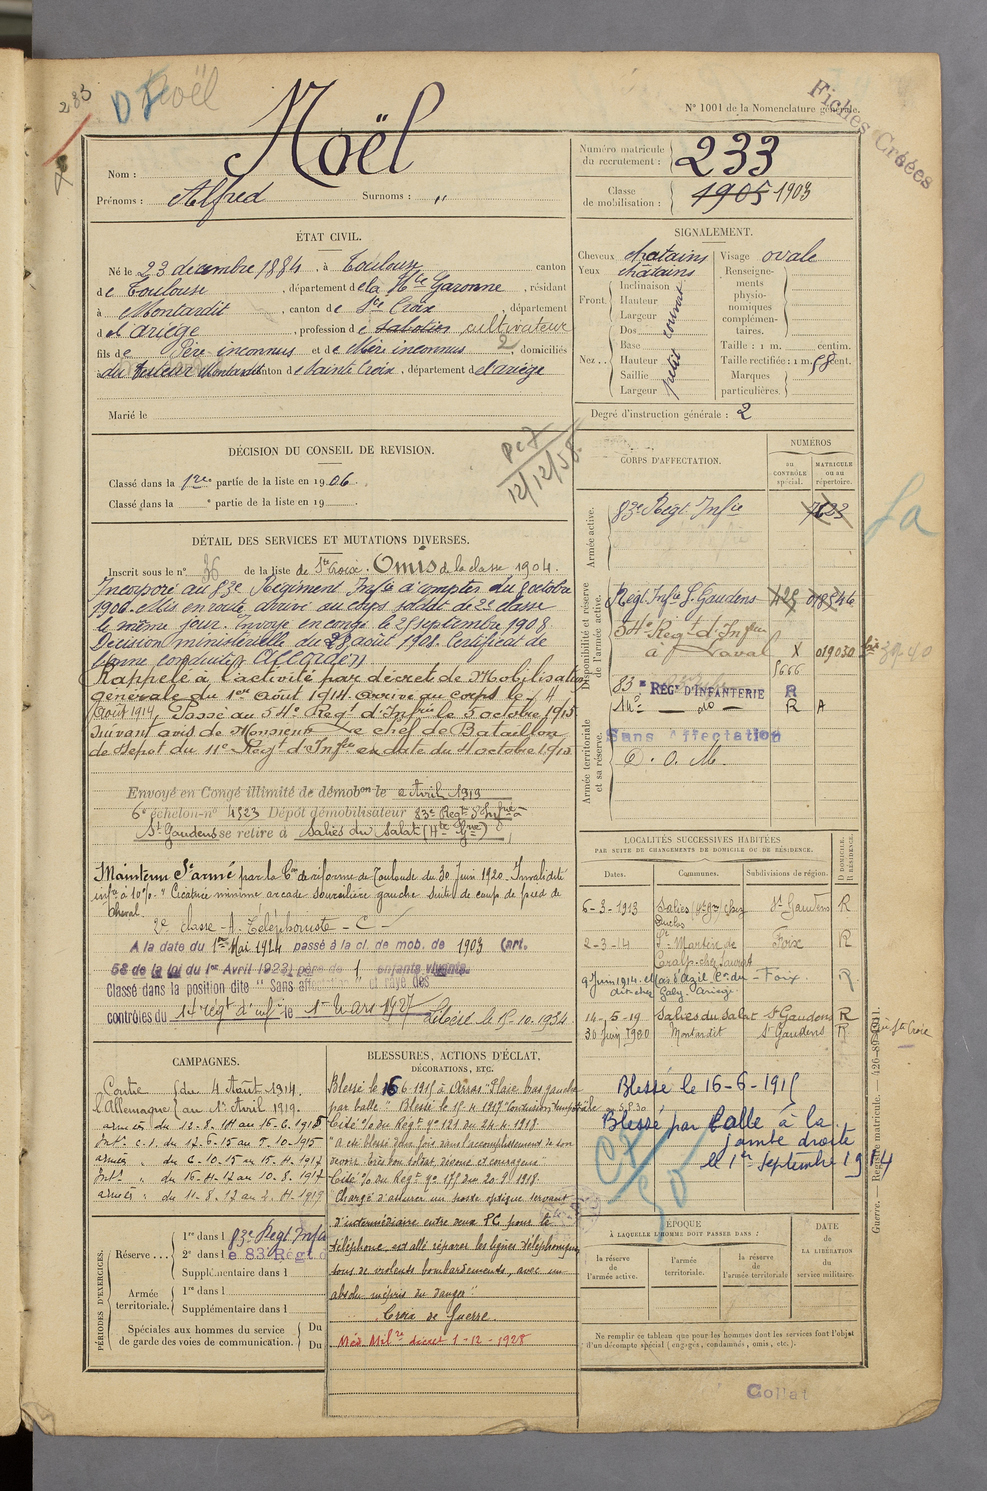 233
DF Noël
N° 1001 de la Nomenclature générale.
Fiches Créées
Nom : Noël
Prénoms : Alfred Surnoms : "
Numéro matricule du recrutement : 233
Classe de mobilisation : 1905 1903
ÉTAT CIVIL.
Né le 23 decembre 1884, à Toulouse canton
de Toulouse, département de la Hte Garonne, résidant
à Montardit, canton de Ste Croix, département
de l'ariège, profession de sabotier cultivateur
fils de Père inconnus et de Mère inconnus 2, domiciliés
à Montardit canton de Sainte Croix, département de l'ariège
Marié le
SIGNALEMENT.
Cheveux chatains
Yeux châtains
Front. Inclinaison Hauteur Largeur couvert
Nez.. Dos Base Hauteur Saillie Largeur petit
Visage ovale
Renseignements physionomiques complémentaires.
Taille : 1 m. centim.
Taille rectifiée : 1 m. 58 cent.
Marques particulières.
Degré d'instruction générale : 2
DÉCISION DU CONSEIL DE REVISION.
Classé dans la 1re partie de la liste en 1906.
Classé dans la e partie de la liste en 19
12/12/58
DÉTAIL DES SERVICES ET MUTATIONS DIVERSES.
Inscrit sous le n° 36 de la liste de Ste Croix. Omis de la classe 1904.
Incorporé au 83e Régiment Infie à compter du 8 octobre
1906. Mis en route, arrivé au corps soldat de 2e classe
le même jour. Envoyé en congé le 25 septembre 1908
Décision ministérielle du 28 août 1908. Certificat de
bonne conduite Accordé.
Rappelé à l'activité par décret de Mobilisation
générale du 1er Août 1914. Arrivé au corps le 4
Août 1914, Passé au 54e Regt d'Infrie le 5 octobre 1915
suivant avis de Monsieur Le chef de Bataillon
de Depot du 11e Regt d'Infie en date du 4 octobre 1915
Envoyé en Congé illimité de démobon le 2 Avril 1919
6e échelon-n° 4523 Dépôt démobilisateur 83e Regt d'Infrie à
St Gaudens se retire à Salies du Salat (Hte Gne)
Maintenu St armé par la Con de réforme de Toulouse du 30 Juin 1920. Invalidité
infre à 10%. "Cicatrice minime arcade sourcilière gauche suite de coup de pied de
cheval.
2e classe - A. Téléphoniste - C -
A la date du 1er Mai 1924 passé à la cl. de mob. de 1903 (art.
58 de la loi du 1er Avril 1923) père de 1, enfants vivants.
Classé dans la position dite "Sans affectation" et rayé des
contrôles du 14e régt d'infie le 1er Mars 1927 Libéré le 15-10-1934
CORPS D'AFFECTATION.
NUMÉROS
au CONTRÔLE spécial.
MATRICULE ou au répertoire.
Armée active.
83e Régt Infie 7623
Disponibilité et réserve de l'armée active.
Régt Infie St Gaudens 425 018546
54e Regt d'Infrie
à Laval X 019030
5666
83e REGt D'INFANTERIE R
14e do R A
Sans Affectation
D. O. M.
Armée territoriale et sa réserve.
LOCALITÉS SUCCESSIVES HABITÉES
PAR SUITE DE CHANGEMENTS DE DOMICILE OU DE RÉSIDENCE.
Dates. Communes. Subdivisions de région. D DOMICILE. R RÉSIDENCE.
6-3-1913 Salies (Hte Gne) chez Duclos St Gaudens R
2-3-14 St Martin de Caralp chez Foix R
9 Juin 1914 Mas d'Azil Foix R
14-5-19 Salies du Salat St Gaudens R
30 Juin 1920 Montardit St Gaudens R
CAMPAGNES.
Contre l'Allemagne du 4 Août 1914 au 1er Avril 1919.
armées du 12-8-14 au 16-6-1915
Intr C.I. du 17-6-15 au 5-10-915
armées " du 6-10-15 au 15-4-1917
Intr " du 16-4-17 au 10-8-1917
armées " du 11-8-17 au 1-4-1919
BLESSURES, ACTIONS D'ÉCLAT, DÉCORATIONS, ETC.
Blessé le 16 6-1915 à Arras "Plaie bras gauche
par balle" Blessé le 15-4-1917 "Contusion temporale
Cité % du Regt n° 121 du 24-4-1918
"A été blessé deux fois dans l'accomplissement de son
devoir. Très bon soldat, dévoué et courageux"
Cité % du Regt n° 175 du 20-9-1918
"Chargé d'assurer un poste optique servant
d'intermédiaire entre deux PC pour le
téléphone, est allé réparer les lignes téléphoniques
sous de violents bombardements, avec un
absolu mépris du danger"
Croix de Guerre
Méd. Milre décret 1-12-1928
Blessé le 16-6-1915
Blessé par balle à la
jambe droite
le 1er Septembre 1914
PÉRIODES D'EXERCICES.
Réserve... 1re dans l 83e Régt Infie
2e dans l e 83e Régt d
Supplémentaire dans l
Armée territoriale. 1re dans l
Supplémentaire dans l
Spéciales aux hommes du service de garde des voies de communication. Du Du
ÉPOQUE
À LAQUELLE L'HOMME DOIT PASSER DANS :
la réserve de l'armée active.
l'armée territoriale.
la réserve de l'armée territoriale
DATE de LA LIBÉRATION du service militaire.
Ne remplir ce tableau que pour les hommes dont les services font l'objet
d'un décompte spécial (engagés, condamnés, omis, etc.).
Guerre. — Registre matricule. — 426-89-1911.
Collat